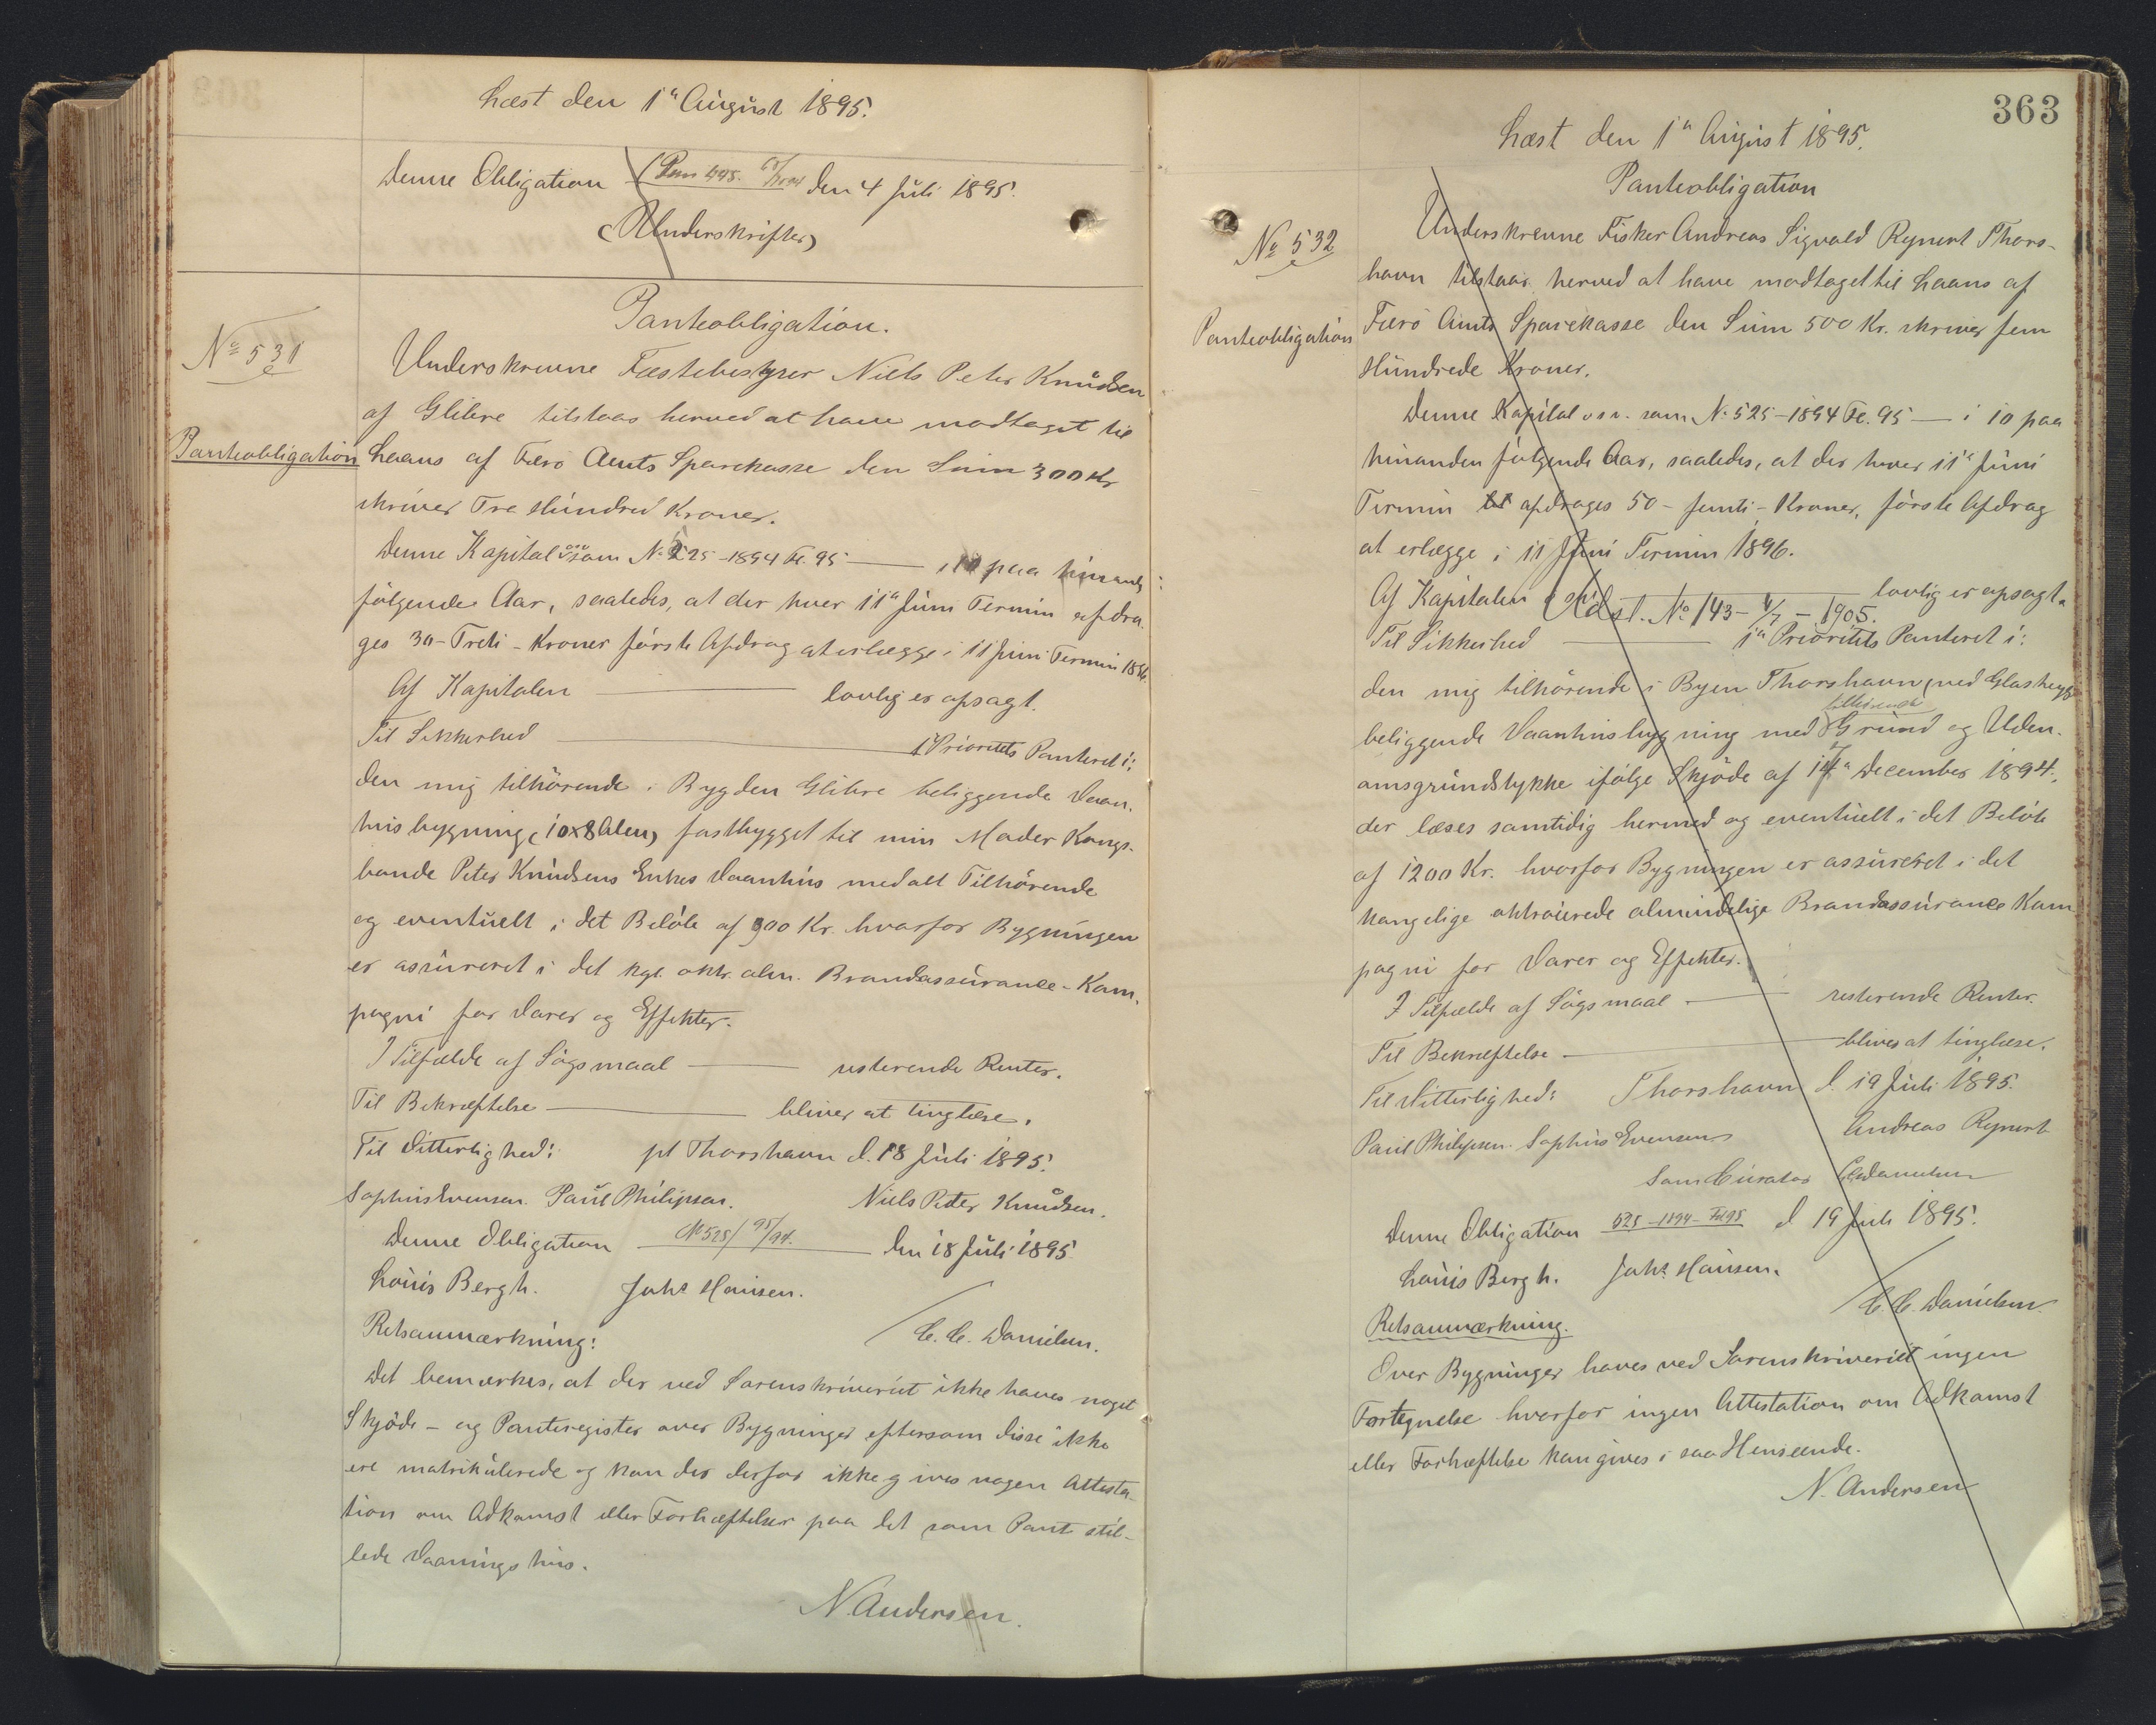 Læst den 1ª August 1895.
Denne Obligation den 4 Juli 1895.
(Underskrifter)
Panteobligation.
No 531
Panteobligation
Underskrevne Fæstebestyrer Niels Peter Knudsen
af Glibre tilstaar herved at have modtaget til
Laans af Færö Amts Sparekasse den Sum 300 Kr
skriver Tre Hundred Kroner.
Denne Kapital osv som No 525-1894 Fol. 95 — i 10 paa hinanden
følgende Aar, saaledes, at der hver 11ª Juni Termin afdra-
ges 30-Treti-Kroner första Afdrag at erlægge i 11 Juni Termin 1896.
Af Kapitalen — lovlig er opsagt.
Til Sikkerhed — 1 Prioritets Panteret i:
den mig tilhörende i Bygden Glibre beliggende Vaan-
husbygning (10x8 Alen) fastbygget til min Moder Kongs-
bonde Peter Knudsens Enkes Vaanhus med alt Tilhörende
og eventuelt i det Belöb af 900 Kr. hvorfor Bygningen
er assureret i det kgl. oktr. alm. Brandassurance-Kom-
pagni for Varer og Effekter.
I Tilfælde af Sögsmaal — resterende Renter.
Til Bekræftelse — bliver at tinglæse.
Til Vitterlighed: pt Thorshavn d. 18 Juli 1895.
Sophus Evensen. Paul Philipsen. Niels Peter Knudsen.
Denne Obligation No 525/95/94. den 18 Juli 1895
Louis Bergh. Johs Hansen.
C. C. Danielsen.
Retsanmærkning:
Det bemærkes, at der ved Sorenskriveriet ikke haves noget
Skjöde- og Panteregister over Bygninger eftersom disse ikke
ere matrikulerede og kan der derfor ikke gives nogen Attesta-
tion om Adkomst eller Forhæftelser paa det som Pant stil-
lede Vaaningshus.
N. Andersen.
363
Læst den 1ª August 1895.
Panteobligation
No 532
Panteobligation
Underskrevne Fisker Andreas Sigvald Rynert Thors-
havn tilstaar herved at have modtaget til Laans af
Færö Amts Sparekasse den Sum 500 Kr. skriver fem
Hundrede Kroner.
Denne Kapital osv. som No 525-1894 Fol. 95 — i 10 paa
hinanden følgende Aar, saaledes, at der hver 11ª Juni
Termin afdrages 50-femti-Kroner, förste Afdrag
at erlægge i 11 Juni Termin 1896.
Af Kapitalen osv — lovlig er opsagt.
Udst. No 143- 4/7 - 1905.
Til Sikkerhed — 1ª Prioritets Panteret i:
den mig tilhörende i Byen Thorshavn (ved Glashegg)
beliggende Vaanhusbygning med tilhörende Grund og Uden-
omsgrundstykke ifölge Skjöde af 17ª December 1894,
der læses samtidig hermed og eventuelt i det Belöb
af 1200 Kr. hvorfor Bygningen er assureret i det
kongelige oktroierede almindelige Brandassurance Kom-
pagni for Varer og Effekter.
I Tilfælde af Sögsmaal — resterende Renter.
Til Bekræftelse — blives at tinglæse.
Til Vitterlighed: Thorshavn d. 19 Juli 1895.
Paul Philipsen. Sophus Evensen Andreas Rynert
Som Curator CC Danielsen
Denne Obligation 525-1894-Fol 95 d 19 Juli 1895.
Louis Bergh. Johs Hansen.
C. C. Danielsen.
Retsanmærkning.
Over Bygninger haves ved Sorenskriveriet ingen
Fortegnelse hvorfor ingen Attestation om Adkomst
eller Forhæftelse kan gives i saa Henseende.
N. Andersen